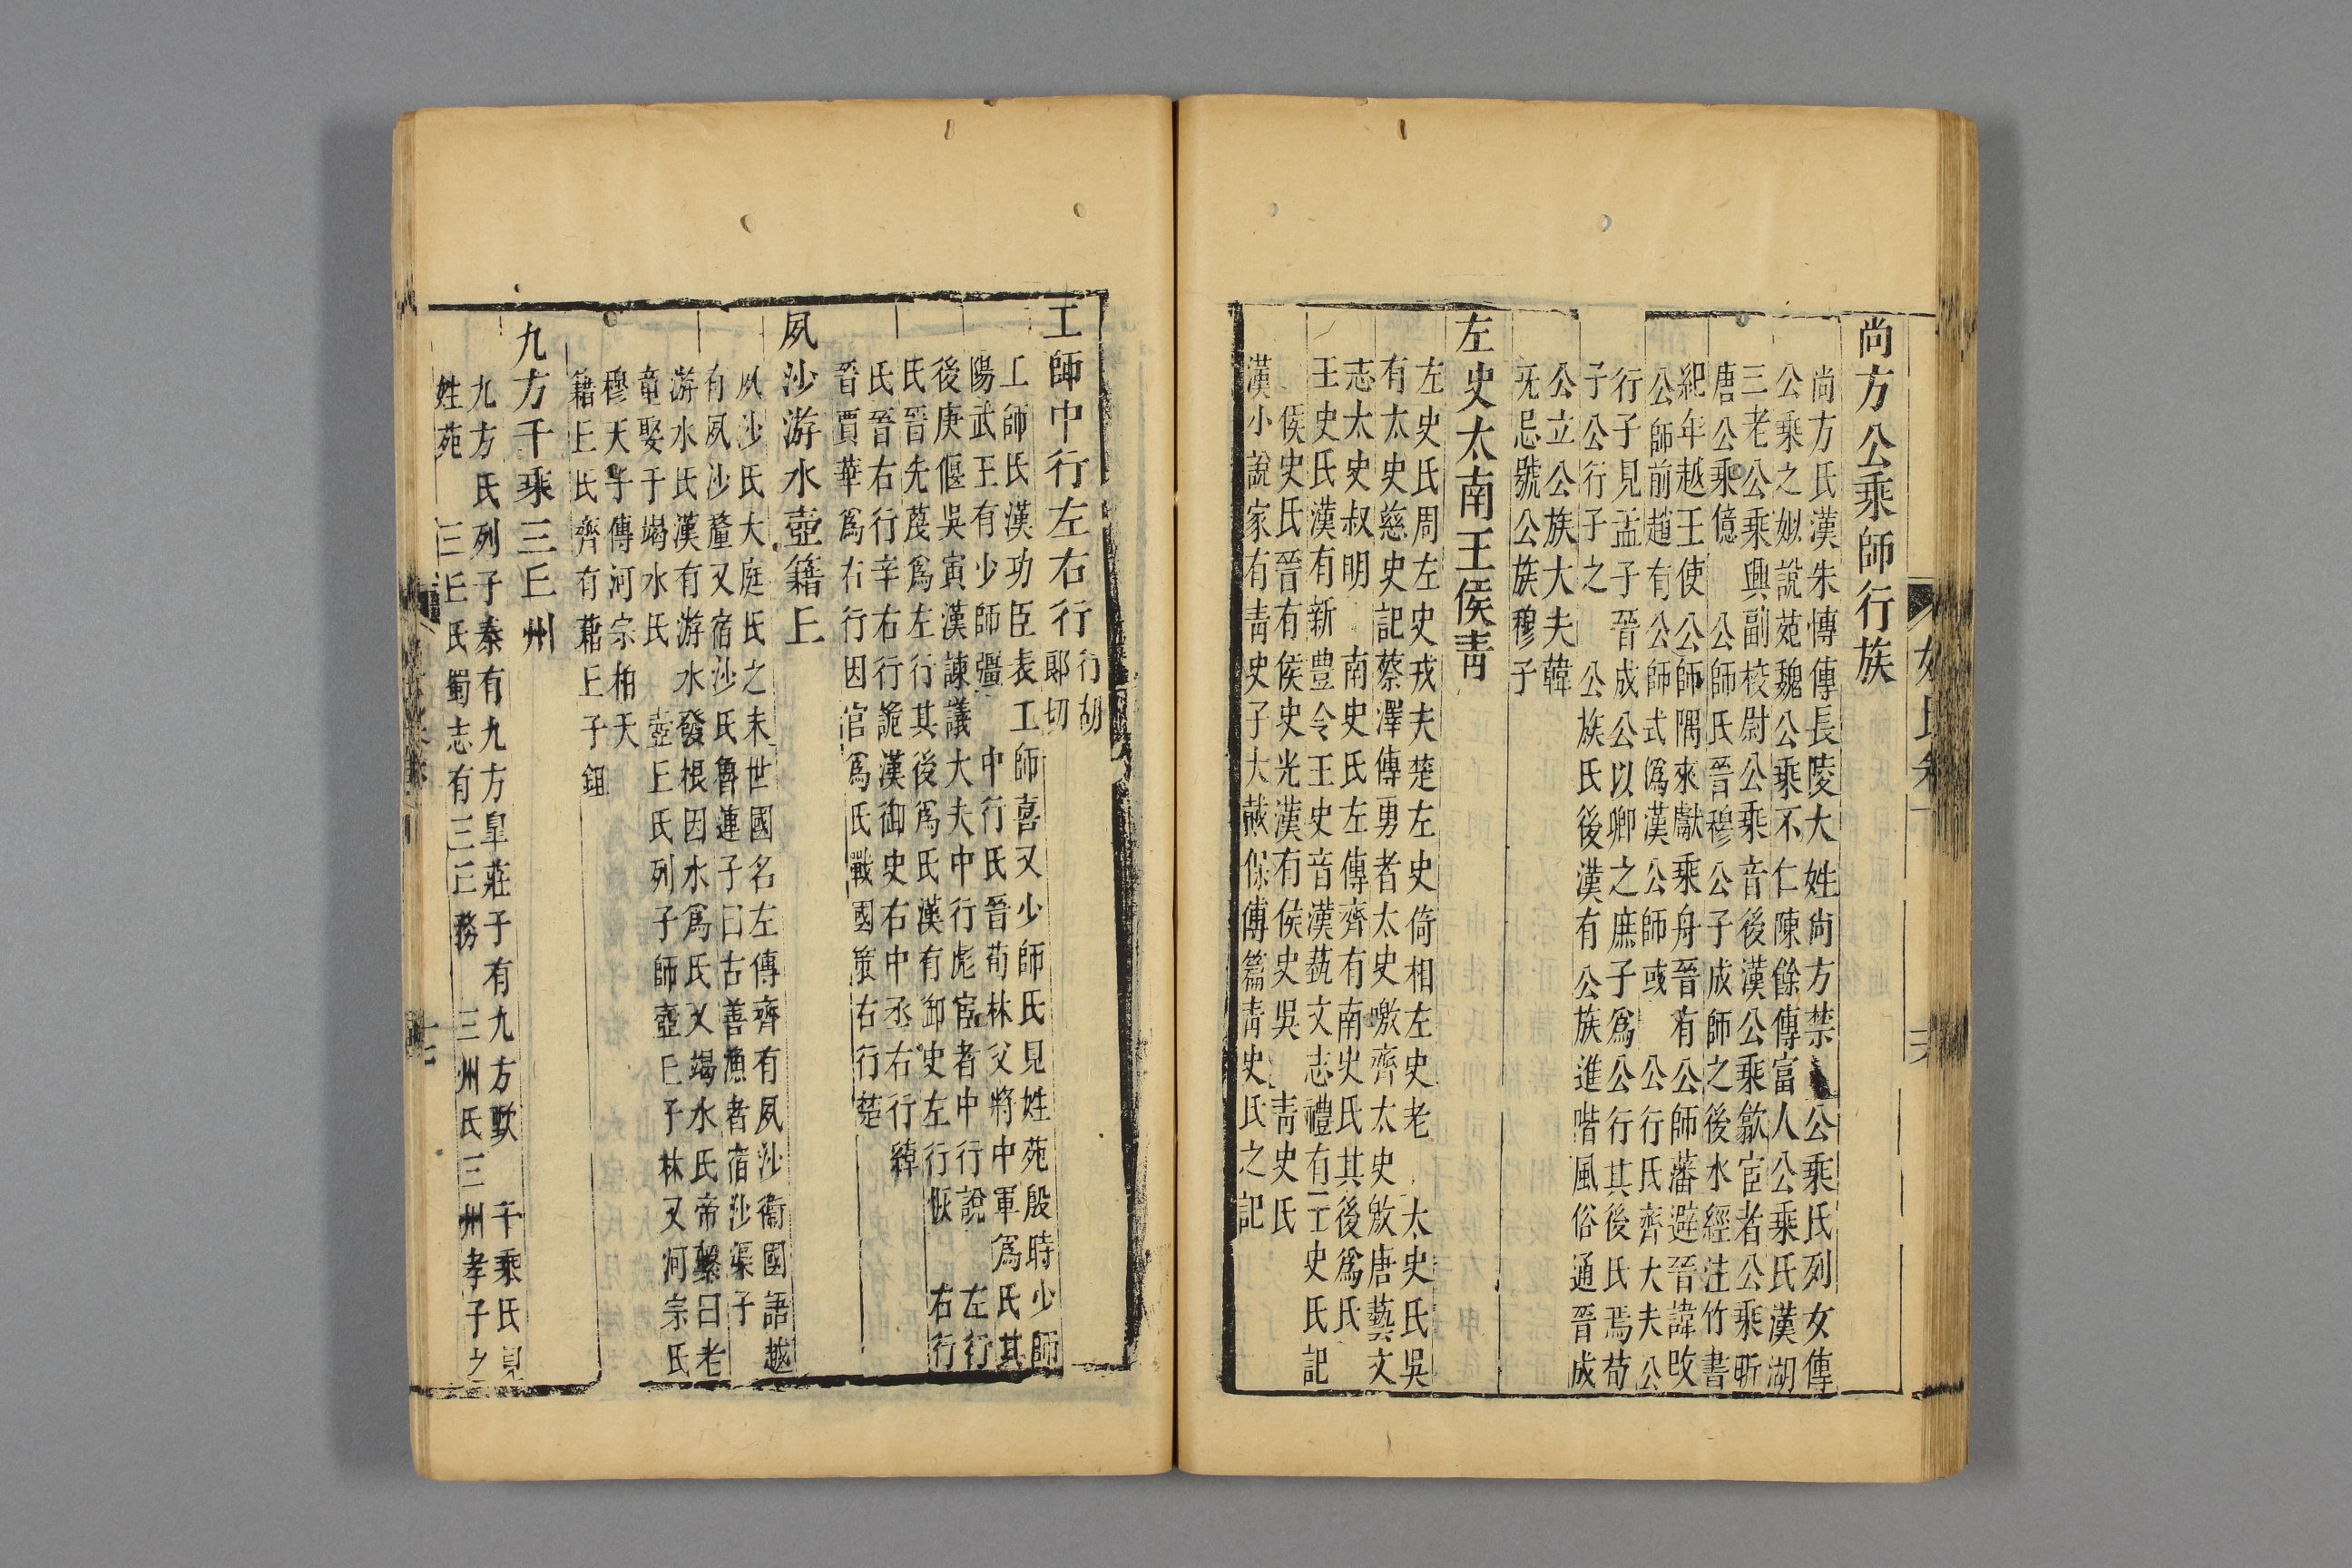 姓氏
尚方公乘師行族
尚方氏漢朱慱傳長陵大姓尚方禁 公乘氏列女傳
公乘之姒說苑魏公乘不仁陳餘傳富人公乘氏漢湖
三老公乘興副校尉公乘音後漢公乘歙宦者公乘昕
唐公乘億 公師氏晉穆公子成師之後水經注竹書
紀年越王使公師隅來獻乘舟晉有公師藩避晉諱改
公師前趙有公師式爲漢公師或 公行氏齊大夫公
行子見孟子晉成公以卿之庶子爲公行其後氏焉荀
子公行子之 公族氏後漢有公族進階風俗通晉成
公立公族大夫韓
无忌號公族穆子
左史太南王侯青
左史氏周左史戎夫楚左史倚相左史老 太史氏吳
有太史慈史記蔡澤傳勇者太史噭齊太史敫唐藝文
志太史叔明 南史氏左傳齊有南史氏其後爲氏
王史氏漢有新豊令王史音漢藝文志禮有王史氏記
侯史氏晉有侯史光漢有侯史吳 青史氏
漢小說家有青史子大戴保傅篇青史氏之記
工師中行左右行 行胡郞切
工師氏漢功臣表工師喜又少師氏見姓苑殷時少師
陽武王有少師彊 中行氏晉荀林父將中軍爲氏其
後庚偃吳寅漢諫議大夫中行彪宦者中行說 左行
氏晉先蔑爲左行其後爲氏漢有御史左行恢 右行
氏晉右行辛右行詭漢御史右中丞右行綽
晉賈華爲右行因官爲氏戰國策右行楚
夙沙游水壺籍丘
夙沙氏大庭氏之末世國名左傳齊有夙沙衞國語越
有夙沙釐又宿沙氏魯連子曰古善漁者宿沙渠子
游水氏漢有游水發根因水爲氏又竭水氏帝繫曰老
童娶于竭水氏 壺丘氏列子師壺丘子林又河宗氏
穆天子傳河宗柏天
籍丘氏齊有藉丘子鉏
九方千乘三丘州
九方氏列子秦有九方皐莊子有九方歅 千乘氏見
姓苑 三丘氏蜀志有三丘務 三州氏三州孝子之